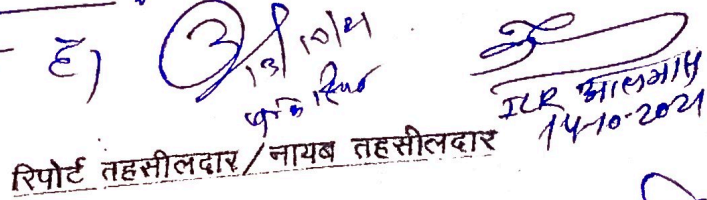 है)
13/10/21
ILR आलमाम
14-10-2021
रिपोर्ट तहसीलदार/नायब तहसीलदार